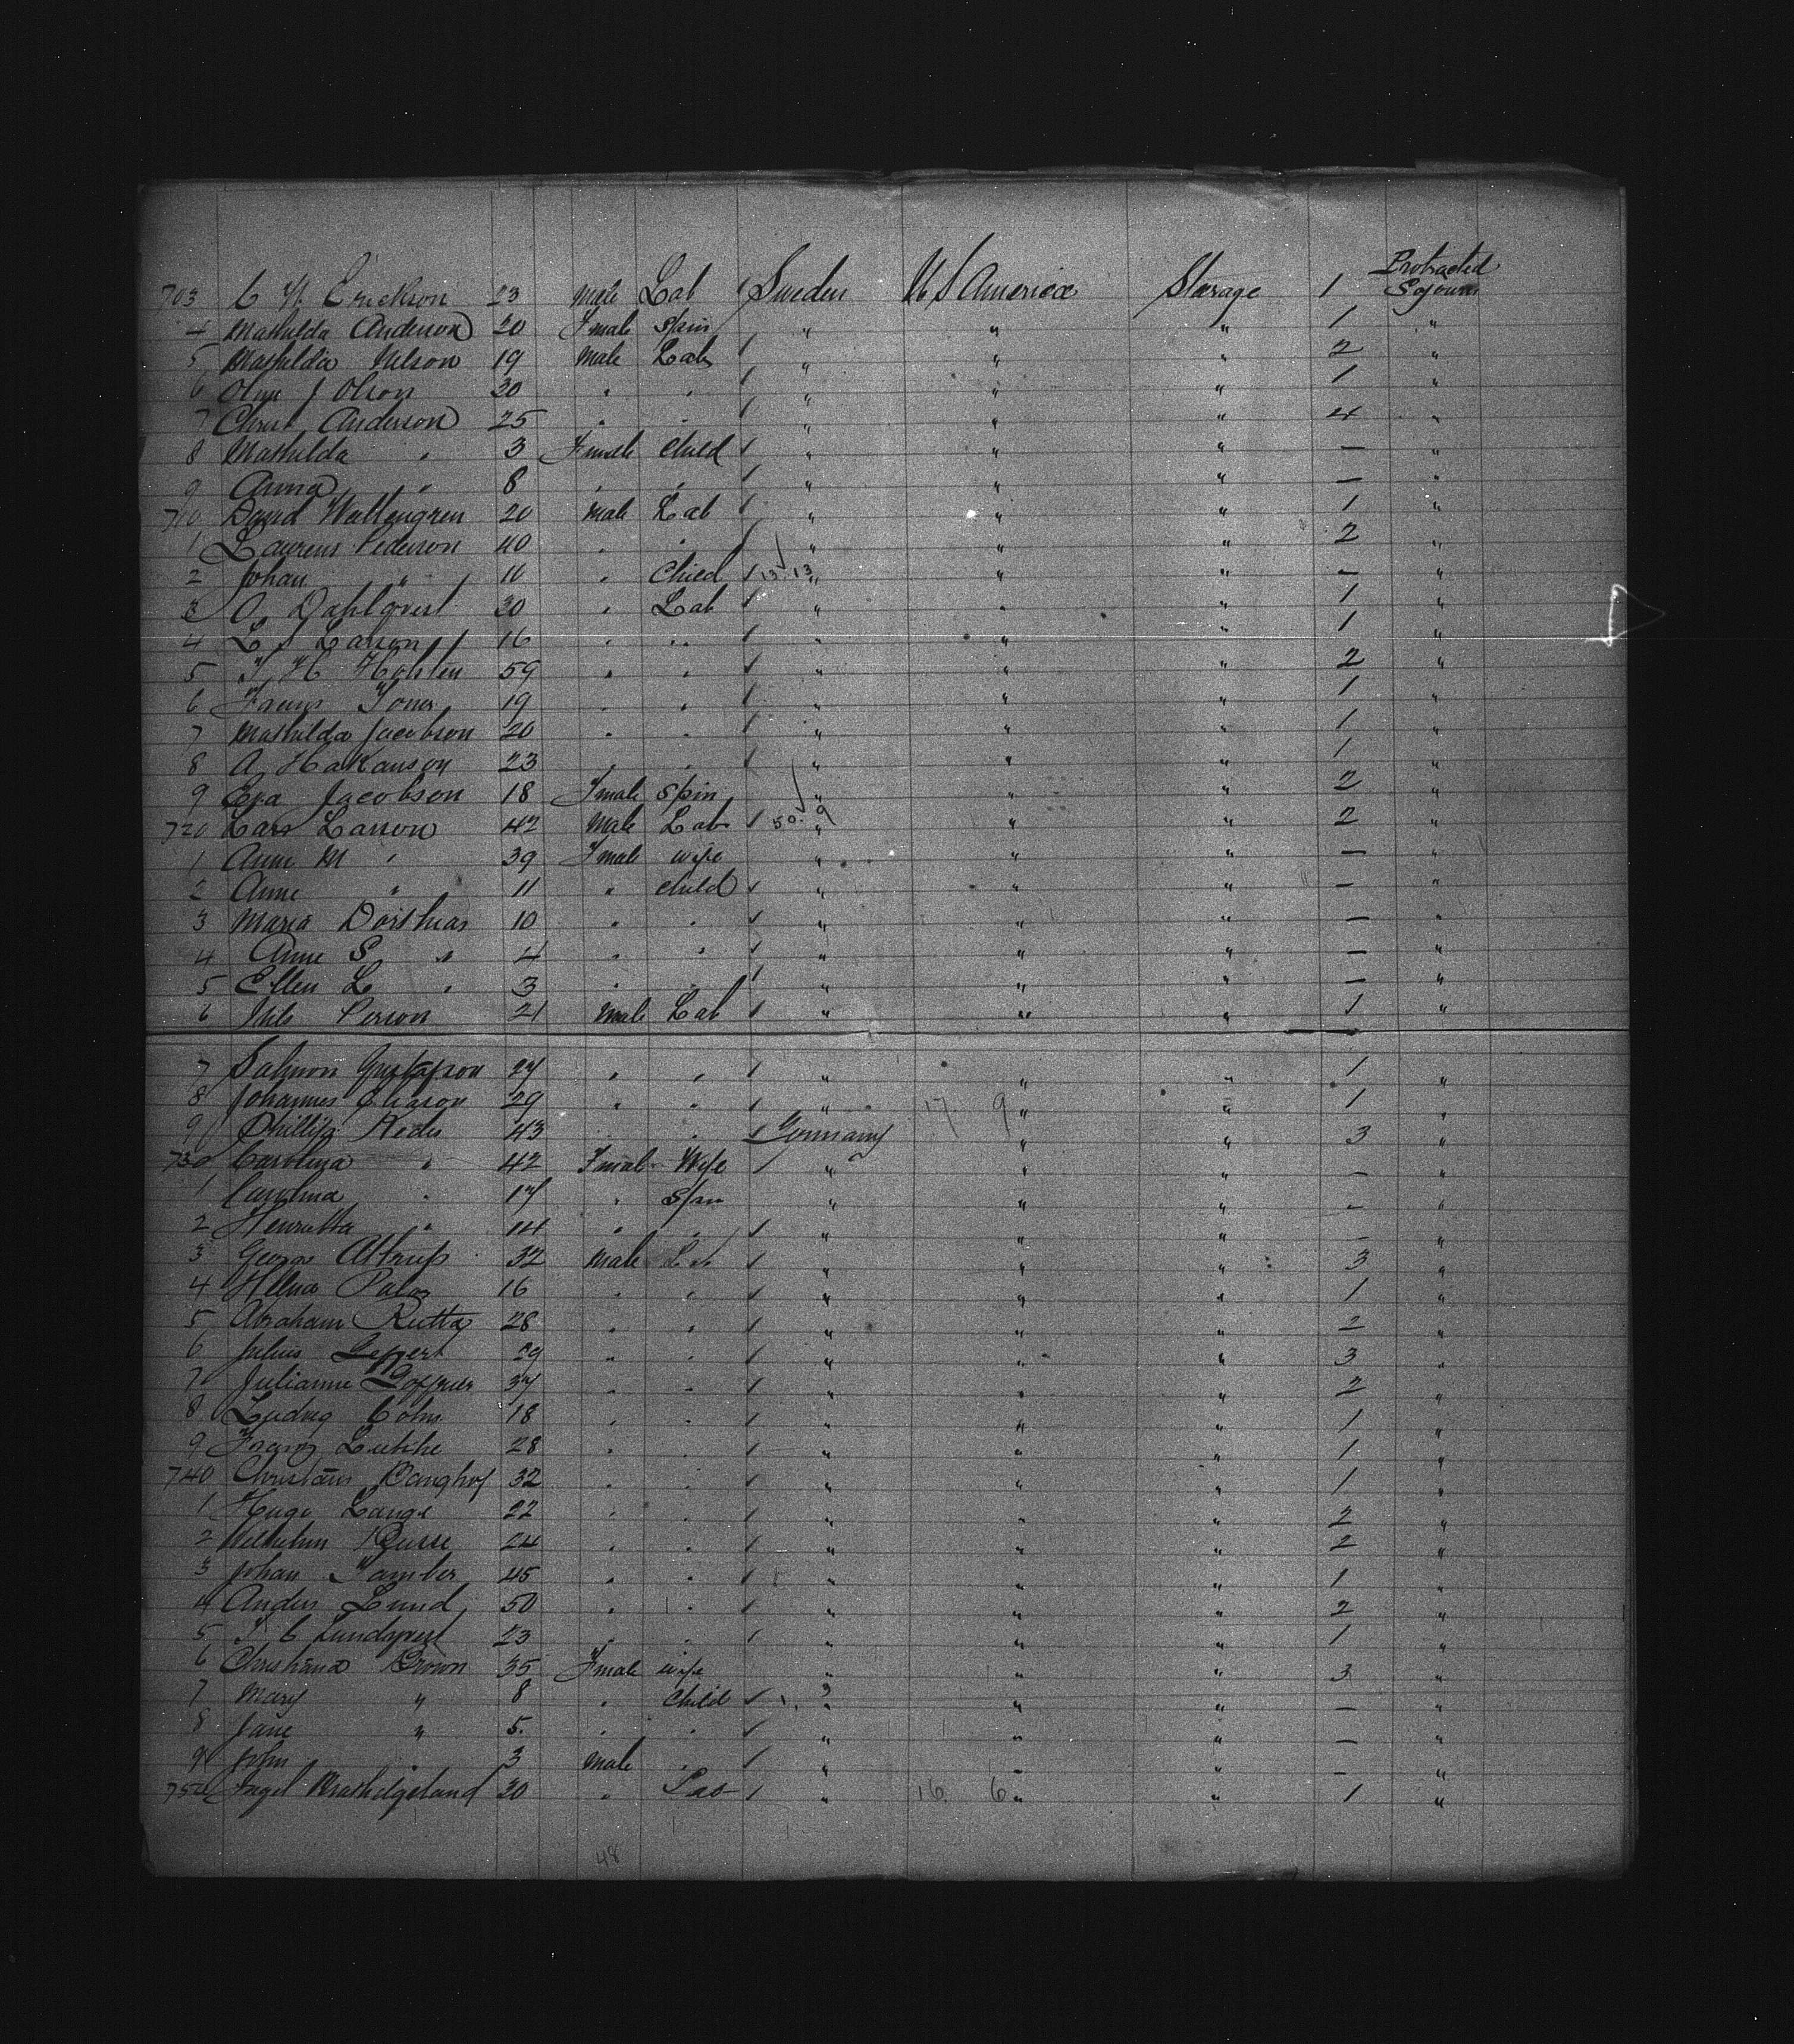 703 C W Erickson 23 Male Lab Sweden U S America Starage 1 Protracted Sojourn
4 Mathilda Anderson 20 Fmale Spin " " " 1 "
5 Mathilda Nilson 19 Male Lab " " " 2 "
6 J Olson 20 " " " " " 1 "
7 Christ Anderson 25 " " " " " 4 "
8 Mathilda " 3 Fmale Child " " " — "
9 Anna " 8 " " " " " — "
710 David Wallengren 20 Male Lab " " " 1 "
1 Laurens Pederson 40 " " " " " 2 "
2 Johan " 16 " Child 13 13 " " " — "
3 A Dahlqvist 30 " Lab " " " 1 "
4 L J Larson 16 " " " " " 1 "
5 H 59 " " " " " 2 "
6 19 " " " " " 1 "
7 Mathilda Jacobson 20 " " " " " 1 "
8 A Hakanson 23 " " " " " 1 "
9 Eva Jacobson 18 Fmale Spin " " " 2 "
720 Lars Larson 42 Male Lab 50 9 " " " 2 "
1 Anne M " 39 Fmale wife " " " — "
2 Anne " 11 " child " " " — "
3 Maria Dorthias 10 " " " " " — "
4 Anne S " 4 " " " " " — "
5 Ellen L " 3 " " " " " — "
6 Nils Person 21 Male Lab " " " 1 "
7 Salmon Gustafson 27 " " " " " 1 "
8 Johannes Eliason 29 " " " 17 9 " " 1 "
9 Phillip 43 " " Germany " " 3 "
730 Carolina " 42 Fmale Wife " " " — "
1 Carolina " 17 " Spin " " " — "
2 Henrietta " 14 " " " " " — "
3 George Altrup 32 Male Lab " " " 3 "
4 Helena 16 " " " " " 1 "
5 Abraham Rutta 28 " " " " " 2 "
6 Julius Geppert 29 " " " " " 3 "
7 Julianne Loffner 37 " " " " " 2 "
8 Ludvig Cohn 18 " " " " " 1 "
9 Franz Lubke 28 " " " " " 1 "
740 Christian Banghof 32 " " " " " 1 "
1 Hugo Lange 22 " " " " " 2 "
2 Wilhelm Busse 24 " " " " " 2 "
3 Johan 45 " " " " " 1 "
4 Anders Lund 50 " " " " " 2 "
5 C Lundqvist 23 " " " " " 1 "
6 Christiana Brown 35 Fmale wife " " " 3 "
7 Mary " 8 " Child " " " — "
8 Jane " 5 " " " " " — "
9 John " 3 Male " " " " — "
750 30 " Lab " 16 6 " " 1 "
48